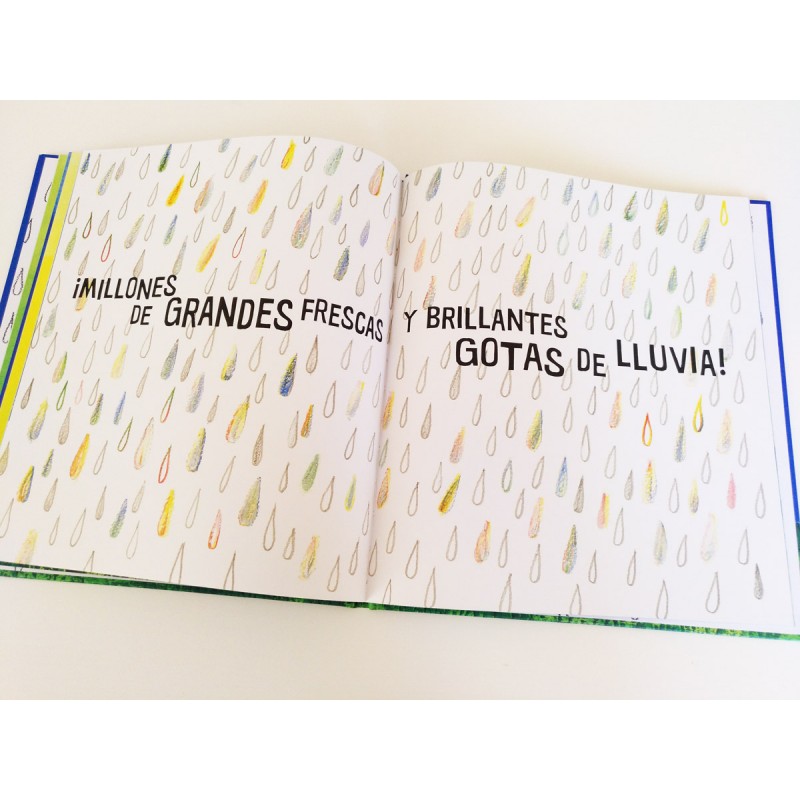 ¡MILLONES
DE GRANDES FRESCAS
Y BRILLANTES
GOTAS DE LLUVIA!